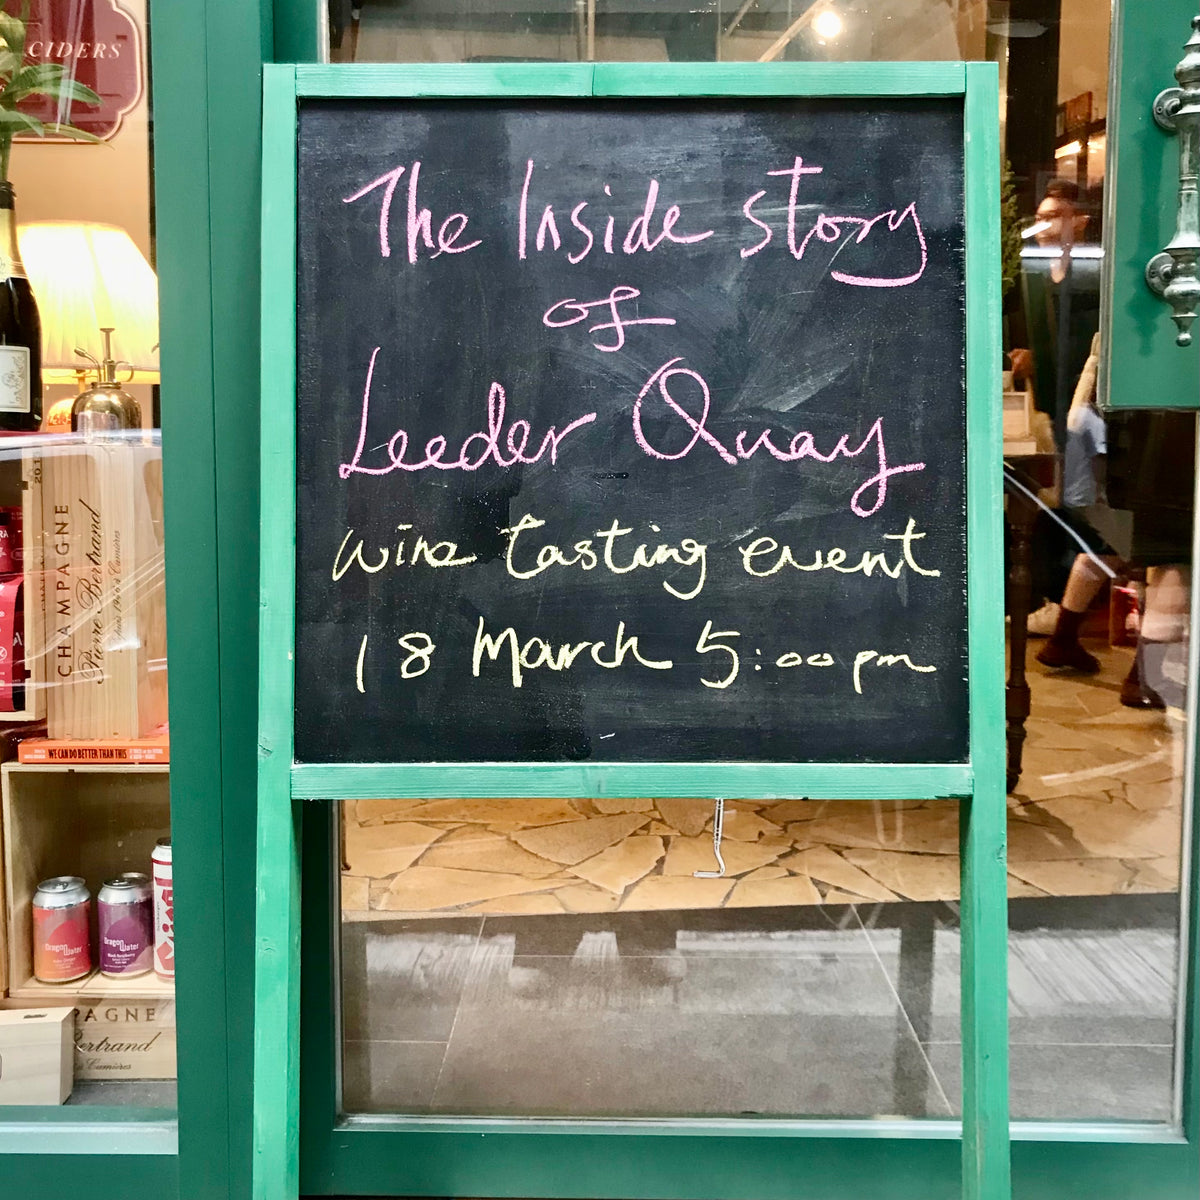 CIDERS
The Inside story
of
Leeder Quay
wine tasting event
18 March 5:00 pm
CHAMPAGNE
Pierre Bertrand
WE CAN DO BETTER THAN THIS
Dragon Water
Dragon Water
PAGNE
Bertrand
Cumières